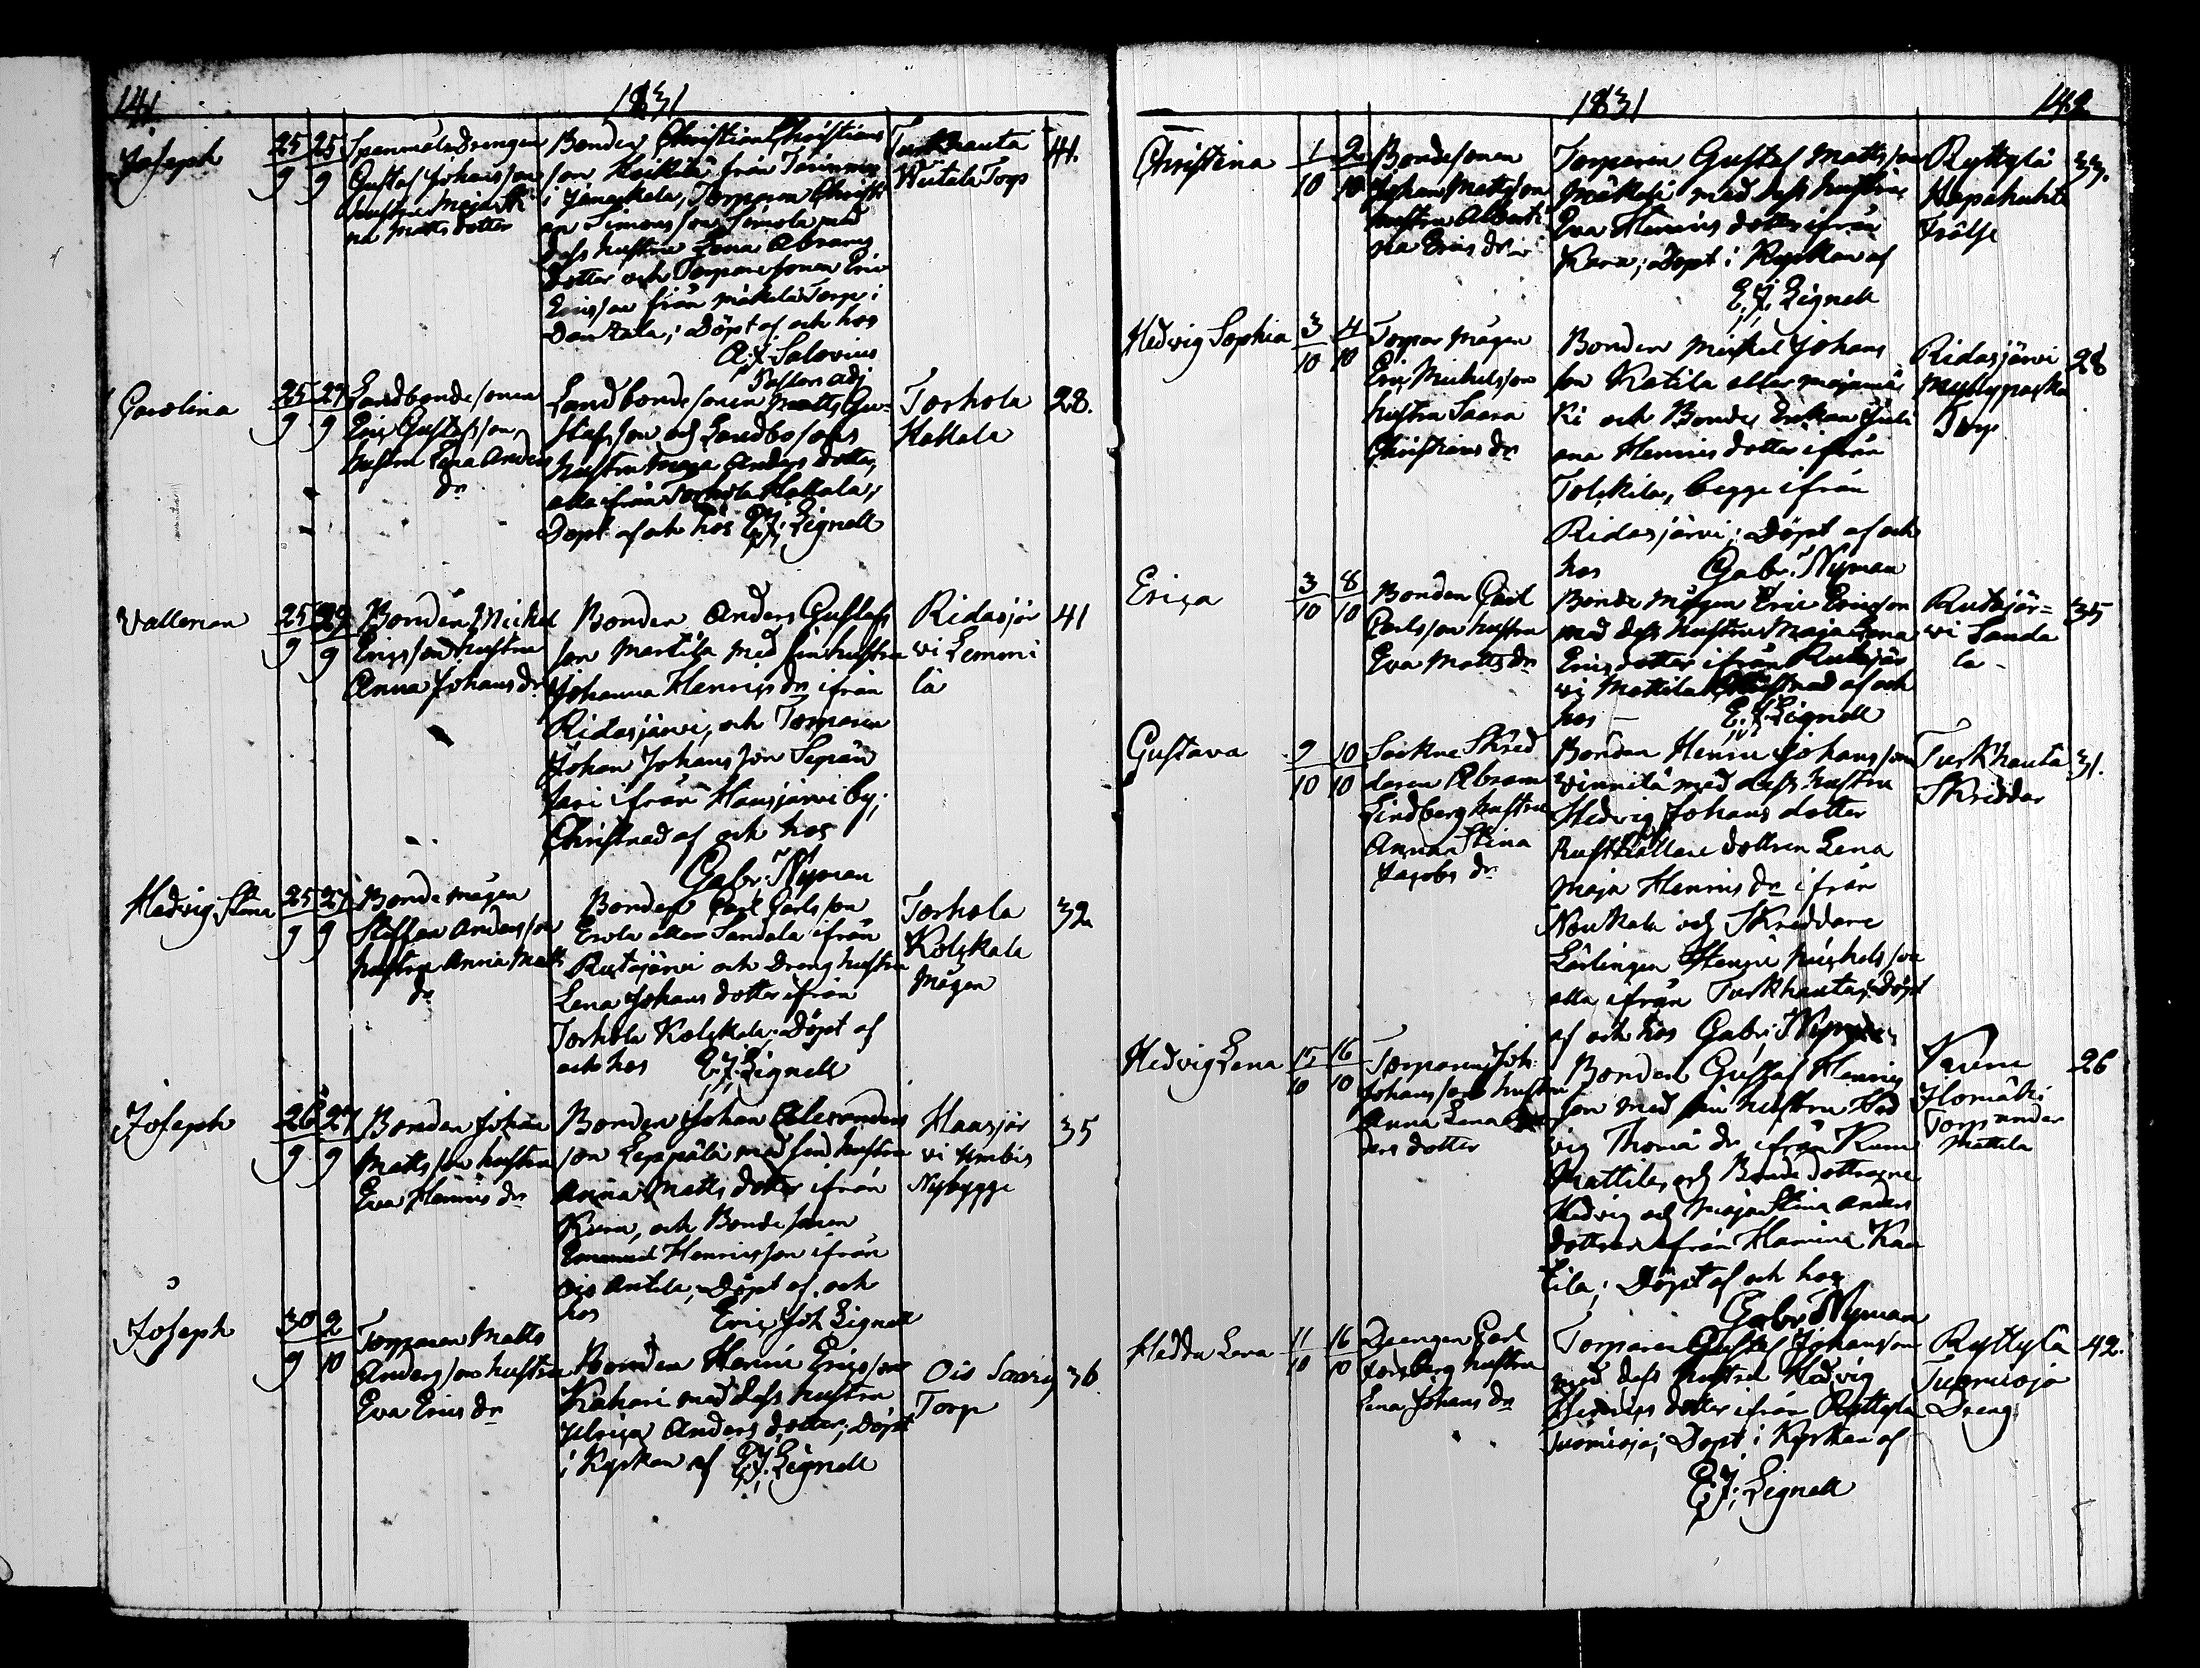 141
1831
Joseph
25/9 25/9
Spanmålsdrengen
Gustaf Johansson
hustru Maja Sti
na Matts dotter
Bonden Christian Christians
son Heikkilä från
i Janakkala, Torparen Christi
an Simonsson Simola med
dess hustru Lena Abrams
dotter och Torparesonen Eric
Ericsson från Mäkelä Torp i
Döpt af och hos
A. J. Salovius
Pastors adj
Turkhauta
Torp
41.
Carolina
25/9 27/9
Landbondesonen
Eric Gustafsson,
hustru Lena Anders
dr
Landbondesonen Matts Gu-
stafsson och Landbosons
hustrun Maja Anders dotter,
alla ifrån Torhola Hakkala;
Döpt af och hos E. J. Lignell
Torhola
Hakkala
28.
Vallerian
25/9 29/9
Bonden Mickel
Ericsson hustru
Anna Johans dr
Bonden Anders Gustafs
son Martila med sin hustru
Johanna Henrics dr ifrån
Ridasjärvi, och Torparen
Johan Johansson Sepän
ifrån Hausjärvi by;
Christnad af och hos
Gabr. Nyman
Ridasjär
vi Lemmi
lä
41
Hedvig Stina
25/9 27/9
Bondemågen
Staffan Andersson
hustru Anna Matts
dr
Bonden Carl Carlsson
Erola eller Sandala ifrån
Rutajärvi och Dreng hustrun
Lena Johans dotter ifrån
Torhola Kolkkala; Döpt af
och hos E. J. Lignell
Torhola
Kolkkala
Mågen
32
Joseph
26/9 27/9
Bonden Johan
Mattsson hustru
Eva Henrics dr
Bonden Johan Alexanders
son Leppälä med sin hustru
Anna Matts dotter ifrån
Karu, och Bondesonen
Emanuel Henricsson ifrån
Ois Antila; Döpt af och
hos Eric Joh Lignell
Hausjär
vi
Nybygge
35
Joseph
30/9 2/10
Torparen Matts
Andersson hustru
Eva Erics dr
Bonden Henric Ericsson
Kahari med dess hustru
Ulrica Anders dotter; Döpt
i Kyrkan af E. J. Lignell
Ois Saari
Torp
36
1831
142
Christina
1/10 2/10
Bondesonen
Johan Mattsson
hustru Alberti
na Erics dr
Torparen Gustaf Mattsson
Mäkelä med dess hustru
Eva Henrics dotter ifrån
Karu; Döpt i Kyrkan af
E. J. Lignell
Ryttylä
Hapahuhta
Frälse
33.
Hedvig Sophia
3/10 4/10
Torpar mågen
Eric Mickelsson
hustru Saara
Christians dr
Bonden Mickel Johans
son Katila eller Mäjanmä
ki och Bonde Enkan Juli
ana Henrics dotter ifrån
Tolkkila, begge ifrån
Ridasjärvi; Döpt af och
hos Gabr. Nyman
Ridasjärvi
Torp
28
Erica
3/10 8/10
Bonden Carl
Carlsson hustru
Eva Matts dr
Bonde Mågen Eric Ericsson
med dess hustru Maja Lena
Erics dotter ifrån Rutajär
vi Mattila Christnad af och
hos E. J. Lignell
Rutajär=
vi Sanda
la
35
Gustava
9/10 10/10
Sockne Skräd
daren Abram
Lindberg hustru
Anna Stina
Jacobs dr
Bonden Henric Johansson
Winnilä med dess hustru
Hedvig Johans dotter
Rusthållare dottren Lena
Maja Henrics dr ifrån
Noukala och Skreddare
Lärlingen Henric Michelsson
alla ifrån Turkhauta; Döpt
af och hos Gabr. Nyman
Turkhauta
Skreddar
31.
Hedvig Lena
15/10 16/10
Torparen Joh:
Johansson hustru
Anna Lena An
ders dotter
Bonden Gustaf Henrics
son med sin hustru Hed
vig Thomæ dr ifrån Karu
Mattila, och Bonde dottrarne
Hedvig och Maja Stina Anders
dottrar ifrån Hamina Kau
tila; Döpt af och hos
Gabr. Nyman
Karu
Hornäki
Torp under
Mattila
26
Hedda Lena
11/10 16/10
Drengen Carl
Forsberg hustru
Lena Johans dr
Torparen Gustaf Johansson
med dess hustru Hedvig
Henrics dotter ifrån Ryttylä
Tuomioja; Döpt i Kyrkan af
E. J. Lignell
Ryttylä
Tuomioja
Dreng
42.